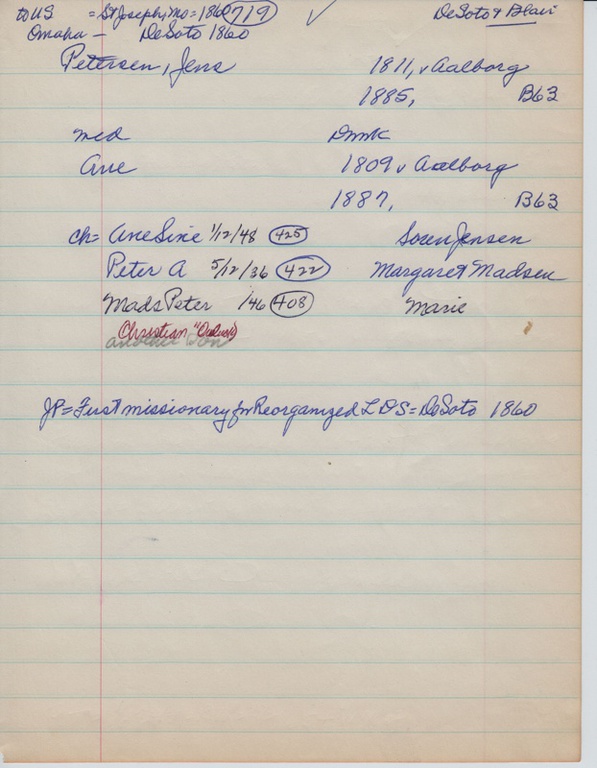 to US = St Joseph, Mo = 1860 719 ✓ DeSoto & Blair
Omaha - DeSoto 1860
Petersen, Jens 1811, v Aalborg
1885, B63
med Dnmk
Ane 1809 v Aalborg
1887, B63
Ch= Ane Sine 1/12/48 425 Soren Jensen
Peter A 5/12/36 422 Margaret Madsen
Mads Peter /46 408 Marie
Christian
another son
JP = First missionary for Reorganized L D S = DeSoto 1860